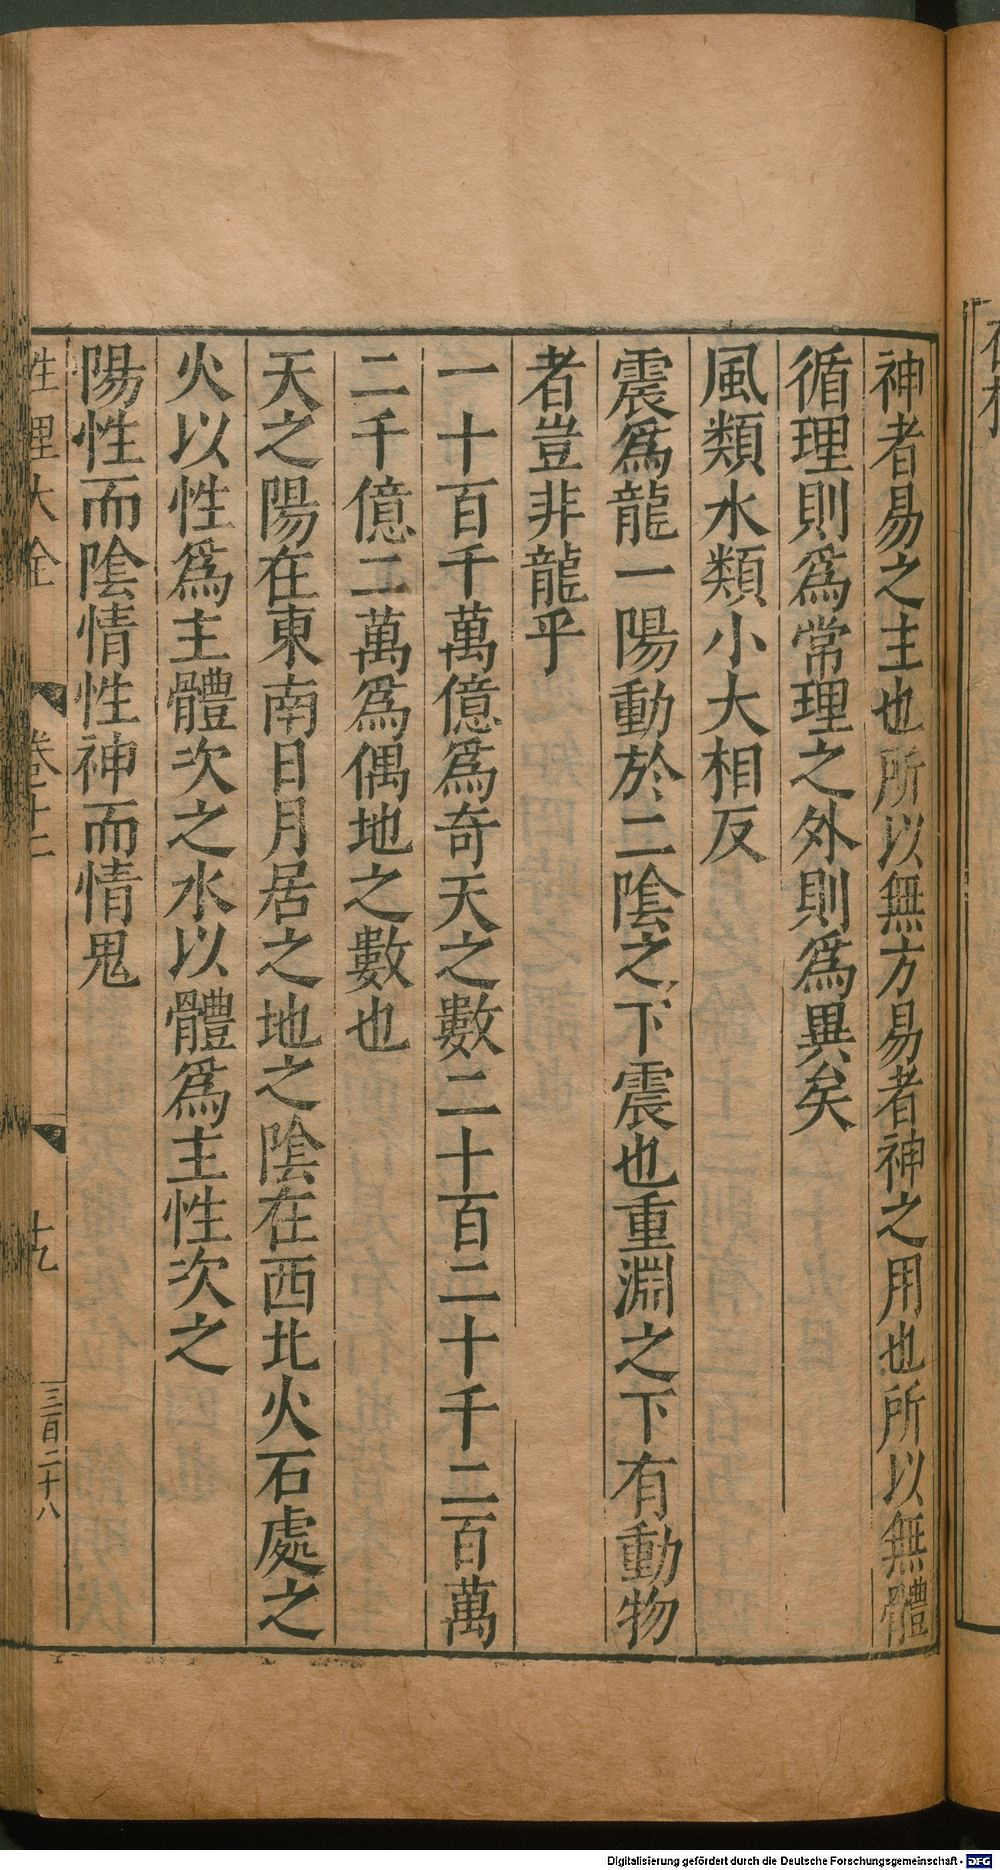 神者易之主也所以無方易者神之用也所以無體
循理則爲常理之外則爲異矣
風類水類小大相反
震爲龍一陽動於二陰之下震也重淵之下有動物
者豈非龍乎
一十百千萬億爲奇天之數二十百二十千二百萬
二千億二萬爲偶地之數也
天之陽在東南日月居之地之陰在西北火石處之
火以性爲主體次之水以體爲主性次之
陽性而陰情性神而情鬼
性理大全
卷十二
十九
三百二十八
Digitalisierung gefördert durch die Deutsche Forschungsgemeinschaft - DFG